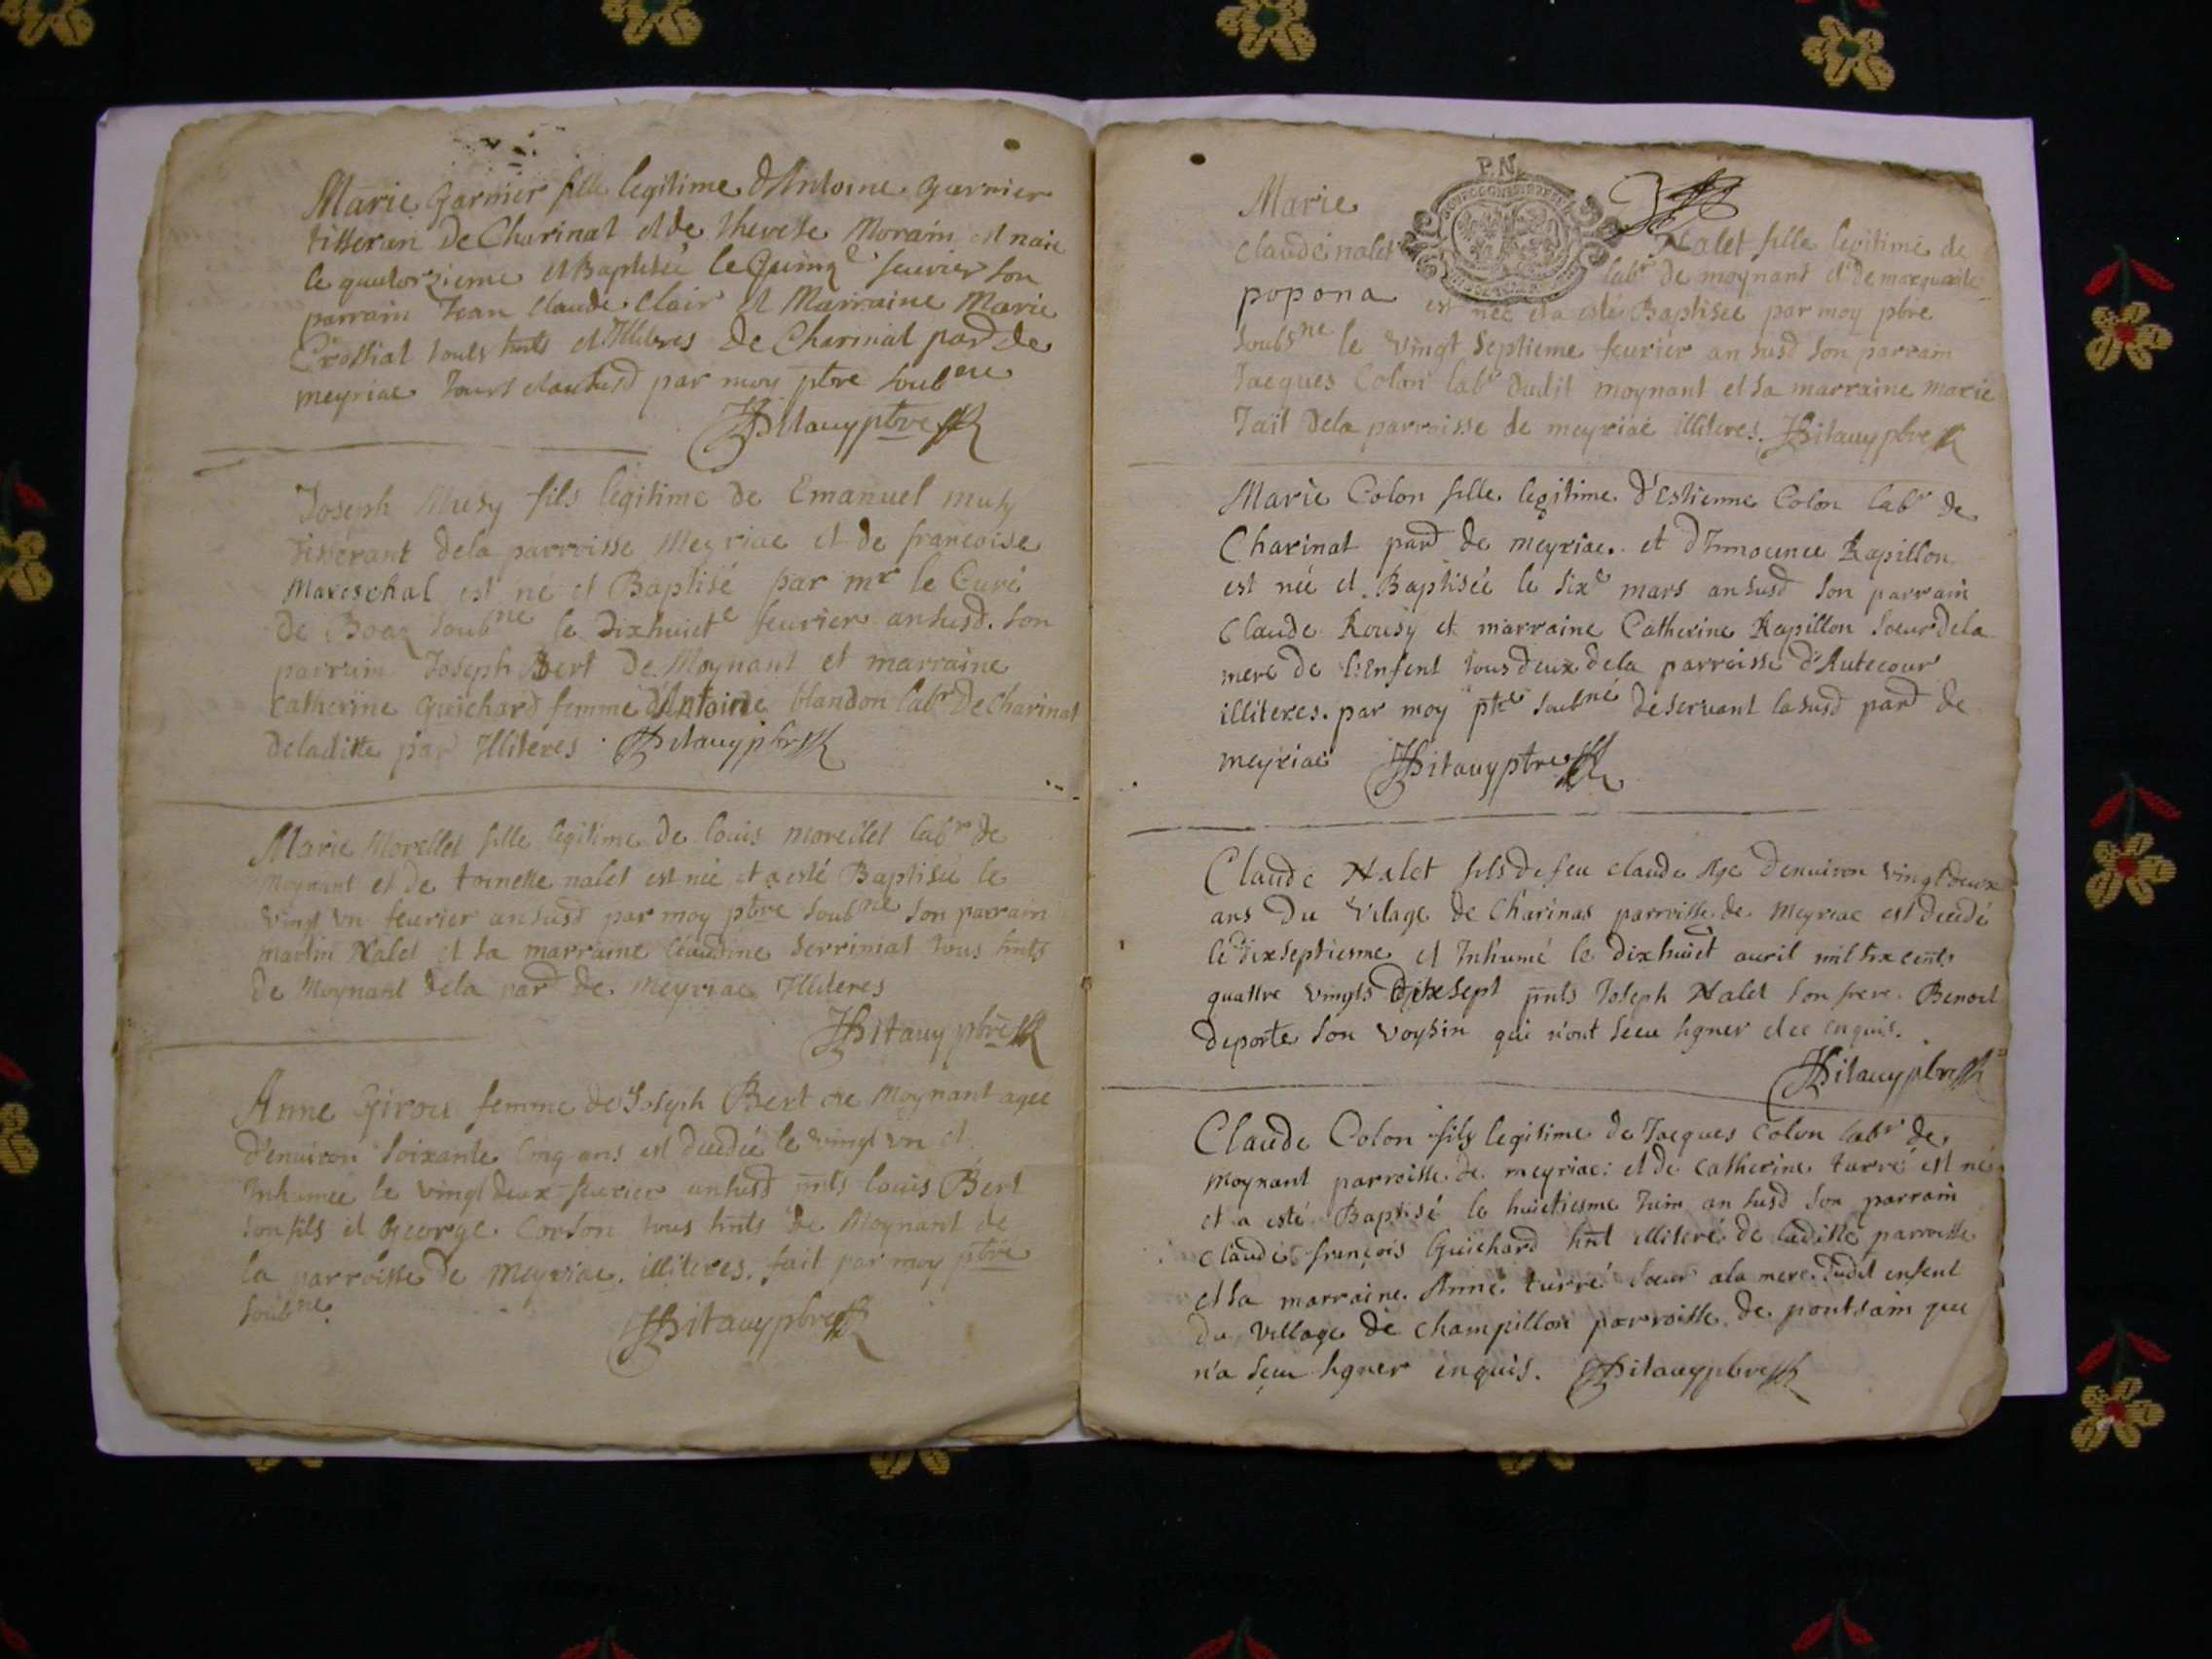 Marie Garnier fille legitime d'Antoine Garnier
tisseran de Charinal et de Therese Morain est naie
le quatorzieme et Baptisée le Quinze feuvrier son
parrain Jean Claude Clair et Marraine Marie
Crossiat touts hnts et Illiteres de Charinal pard de
meyriac Jours et an susd par moy ptre soubne
JBitauy ptre
Joseph Musy fils legitime de Emanuel musy
tisserant dela parroisse Meyriac et de francoise
Mareschal est né et Baptisé par mr le Curé
de Boaz soubne le Dixhuicte feurier an susd. son
parrain Joseph Bert de Moynant et marraine
Catherine Guichard femme d'Antoine blandon labr De Charinat
deladitte par Illiteres. JBitauy pbre
Marie Morellet fille legitime de louis moreillet labr de
Moynant et de toinette nalet est née et a esté Baptisée le
vingt vn feurier an susd par moy ptre soubne son parrain
martin Nalet et sa marraine Claudine Serrimat tous hnts
de Moynant dela pard de Meyriac Illiteres
JBitauy pbre
Anne Girou femme de Joseph Bert de Moynant agée
d'enuiron soixante Cinq ans est decedée le vingt vn et
Inhumée le vingt deux feurier an susd pnts louis Bert
son fils et George Corson tous hnts de Moynant de
la parroisse de Meyriac. illiteres. fait par moy ptre
soubne.
JBitauy pbre
P.N.
Marie
Claude nalet Nalet fille legitime de
labr de moynant et de
popona est née et a esté Baptisée par moy pbre
soubsne le vingt septieme feurier an susd son parrain
Jacques Colon labr dudit moynant et sa marraine marie
Tait dela parroisse de meyriac illiteres. JBitauy pbre
Marie Colon fille legitime d'Estienne Colon labr de
Charinat pard de meyriac. et d'Innocence Rapillon
est née et Baptisée le sixe mars an susd son parrain
Claude Rousy et marraine Catherine Rapillon soeur dela
mere de l'Enfent tous deux dela parroisse d'Autecour
illiteres. par moy ptre soubné deseruant lasusd pard de
meyriac JBitauy ptre
Claude Nalet fils de feu claude Age d'enuiron vingt deux
ans Du Vilage de Charinas parroisse de Meyriac est decedé
le dixseptiesme et Inhumé le Dixhuict auril mil six cents
quattre vingts Dixsept pnts Joseph Nalet son frere. Benoit
deporte son voysin qui n'ont sceu signer de ce enquis.
JBitauy pbre
Claude Colon fils legitime de Jacques Colon labr de
moynant parroisse de meyriac: et de catherine turré est né
et a esté Baptisé le huictiesme Juin an susd son parrain
claude françois Guichard hnt illiteré de laditte parroisse
et sa marraine Anne turré soeur ala mere dudit enfent
du Village de Champillon parroisse de pontdain que
n'a sceu signer enquis. JBitauy pbre